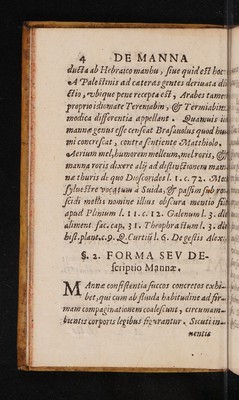 4 DE MANNA
ducta ab Hebraico manhu, siue quid est hoc
A Palestinis ad cæteras gentes deriuata di
ctio, vbique pene recepta est, Arabes tamen
proprio idiomate Tereniabin, & Termiabin
modica differentia appellant. Quamuis in
mannæ genus esse censeat Brasauolus quod hu
mi concrescat, contra sentiente Matthiolo.
Aerium mel, humorem melleum, mel roris, &
manna roris dixere alij ad distinctionem man
na thuris de quo Dioscorides l. 1. c. 72. Mel
syluestre vocatum à Suida, & passim sub ro
scidi mellis nomine illius obscura mentio sit
apud Plinium l. 11. c. 12. Galenum l. 3. de
aliment fac. cap, 31. Theophrastum l. 3. de
hist. plant. c. 9. Q. Curtiũ l. 6. De gestis Alex
§. 2. FORMA SEV DE-
scriptio Mannæ.
MAnnæ consistentia succos concretos exhi-
bet, qui cum ab fluida habitudine ad fir-
mam compaginationem coalescunt, circumam-
bientes corporis legibus figurantur. Sicuti in-
mentia